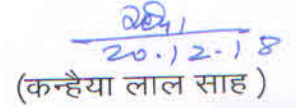 20.12.18
(कन्हैया लाल साह )